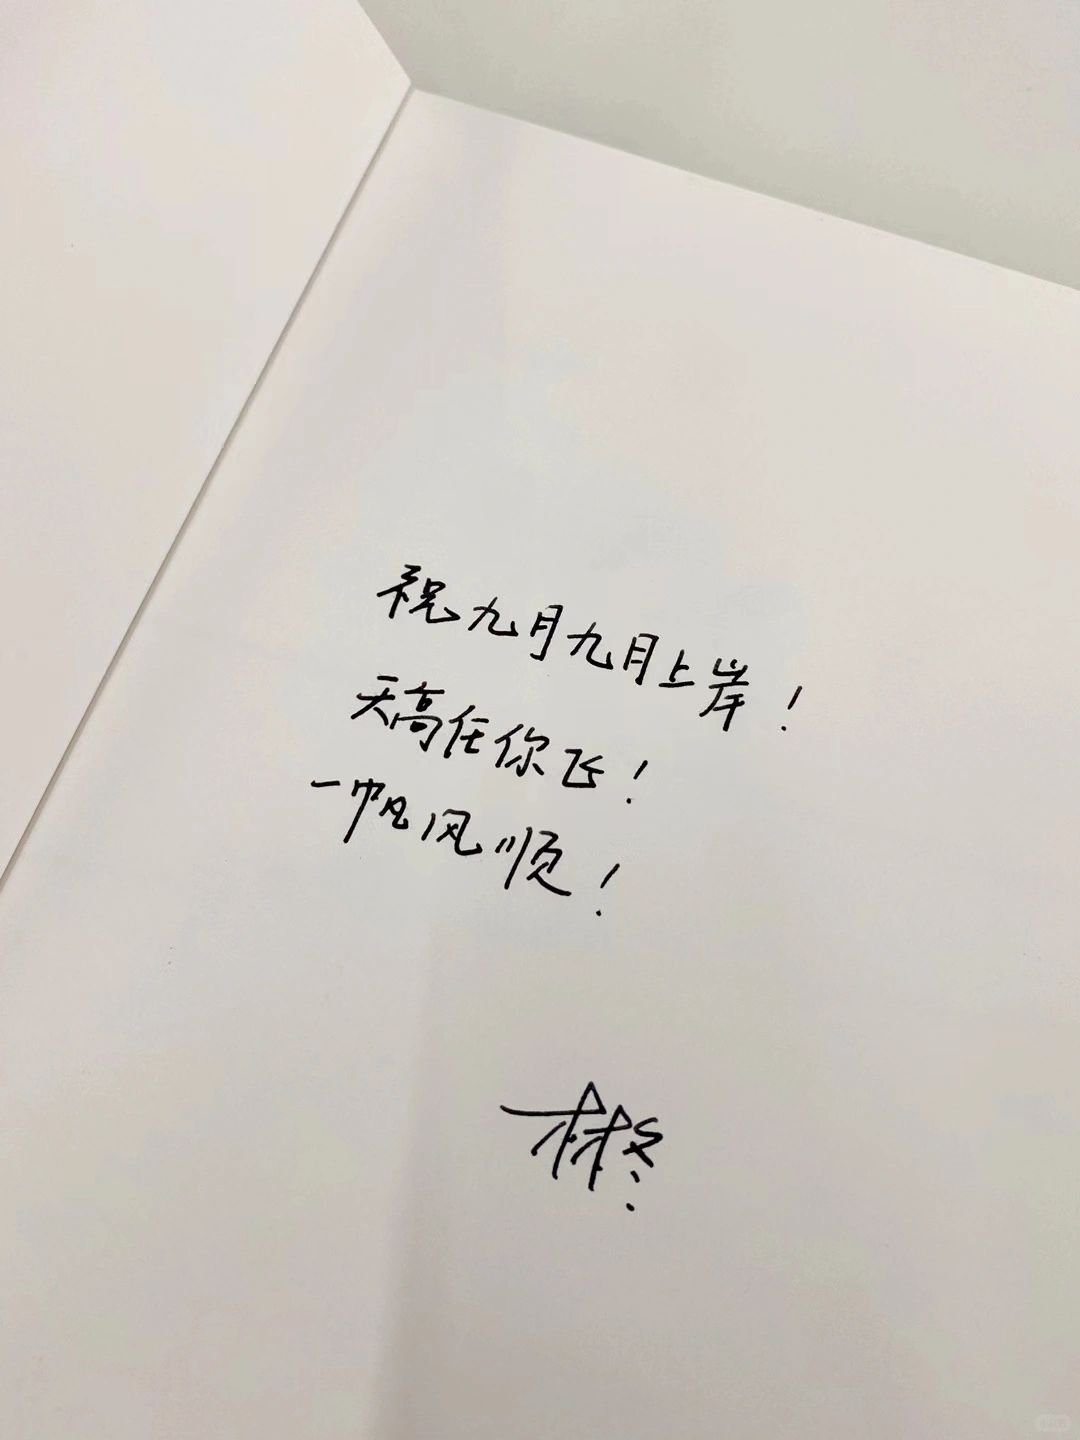 祝九月九月上岸！
天高任你飞！
一帆风顺！
林冬